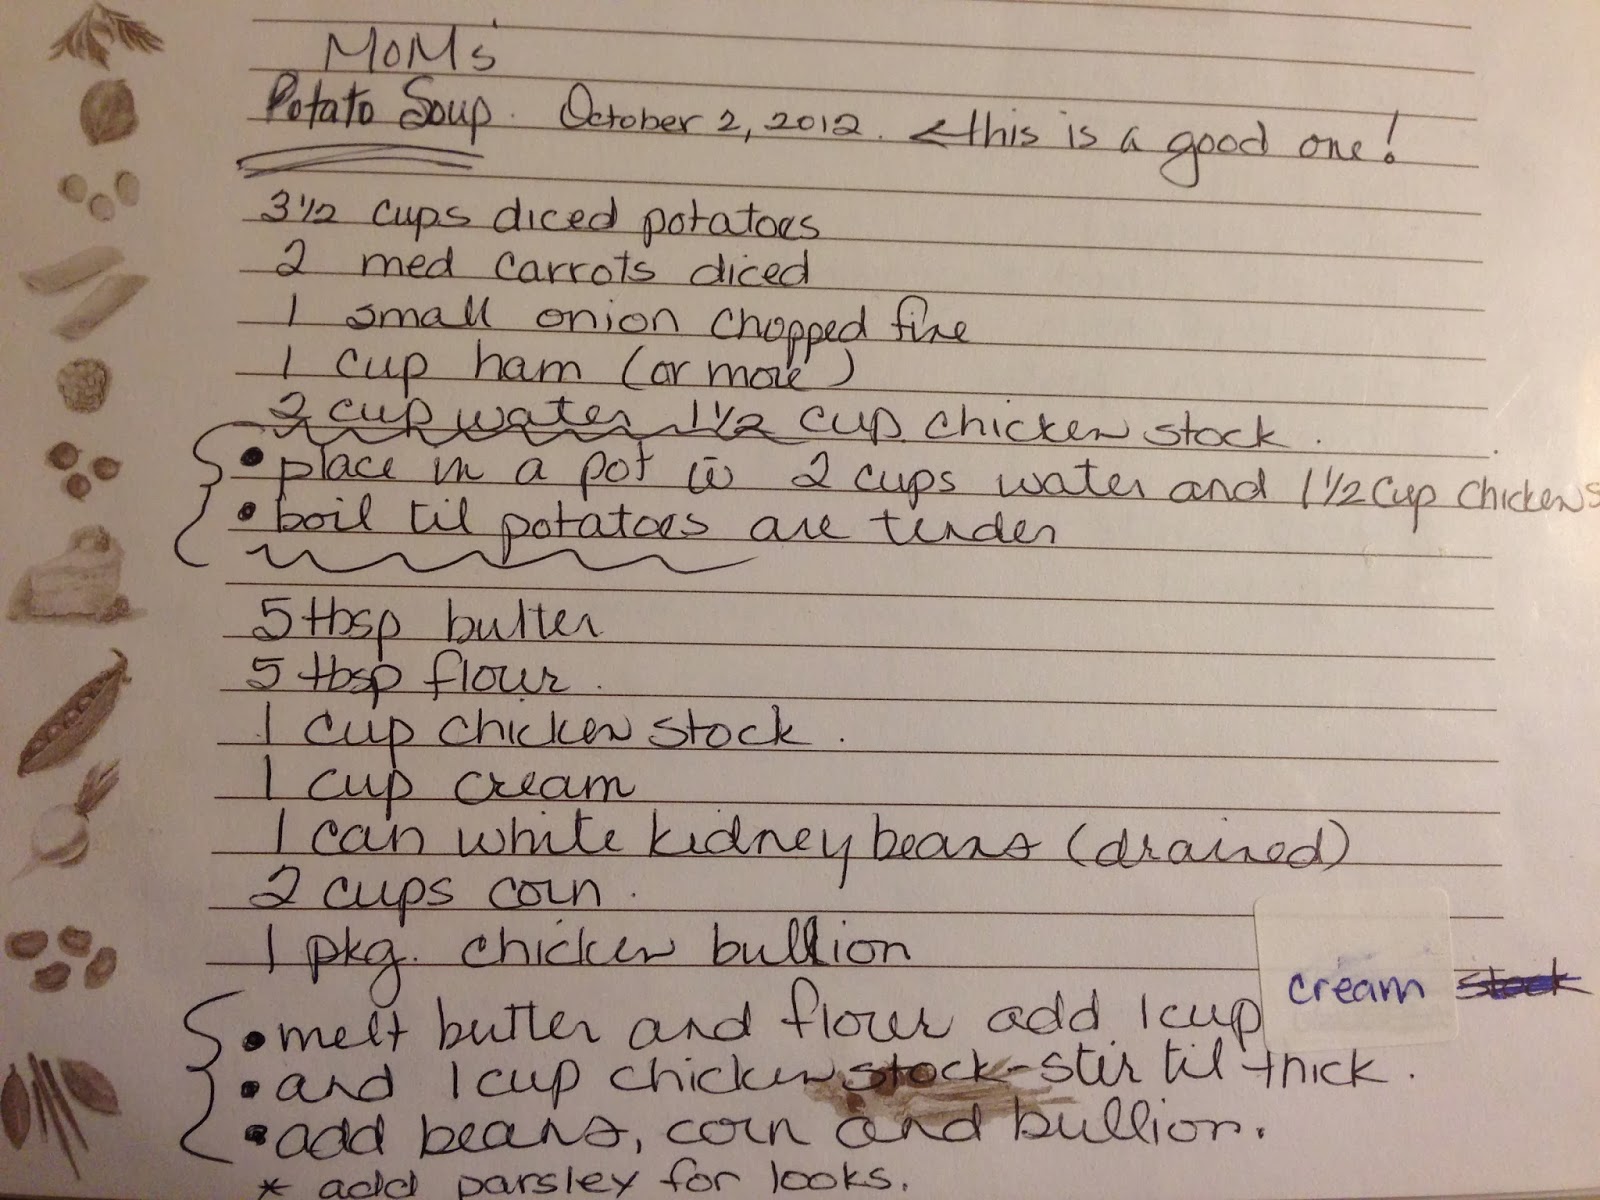 MOM's
Potato Soup. October 2, 2012. ← this is a good one!
3 1/2 cups diced potatoes
2 med carrots diced
1 small onion chopped fine
1 cup ham (or more)
2 cup water 1 1/2 cup chicken stock.
• place in a pot w 2 cups water and 1 1/2 cup chicken s
• boil til potatoes are tender
5 tbsp butter
5 tbsp flour.
1 cup chicken stock.
1 cup cream
1 can white kidney beans (drained)
2 cups corn.
1 pkg. chicken bullion
• melt butter and flour add 1 cup cream stock
• and 1 cup chicken stock - stir til thick.
• add beans, corn and bullion.
* add parsley for looks.